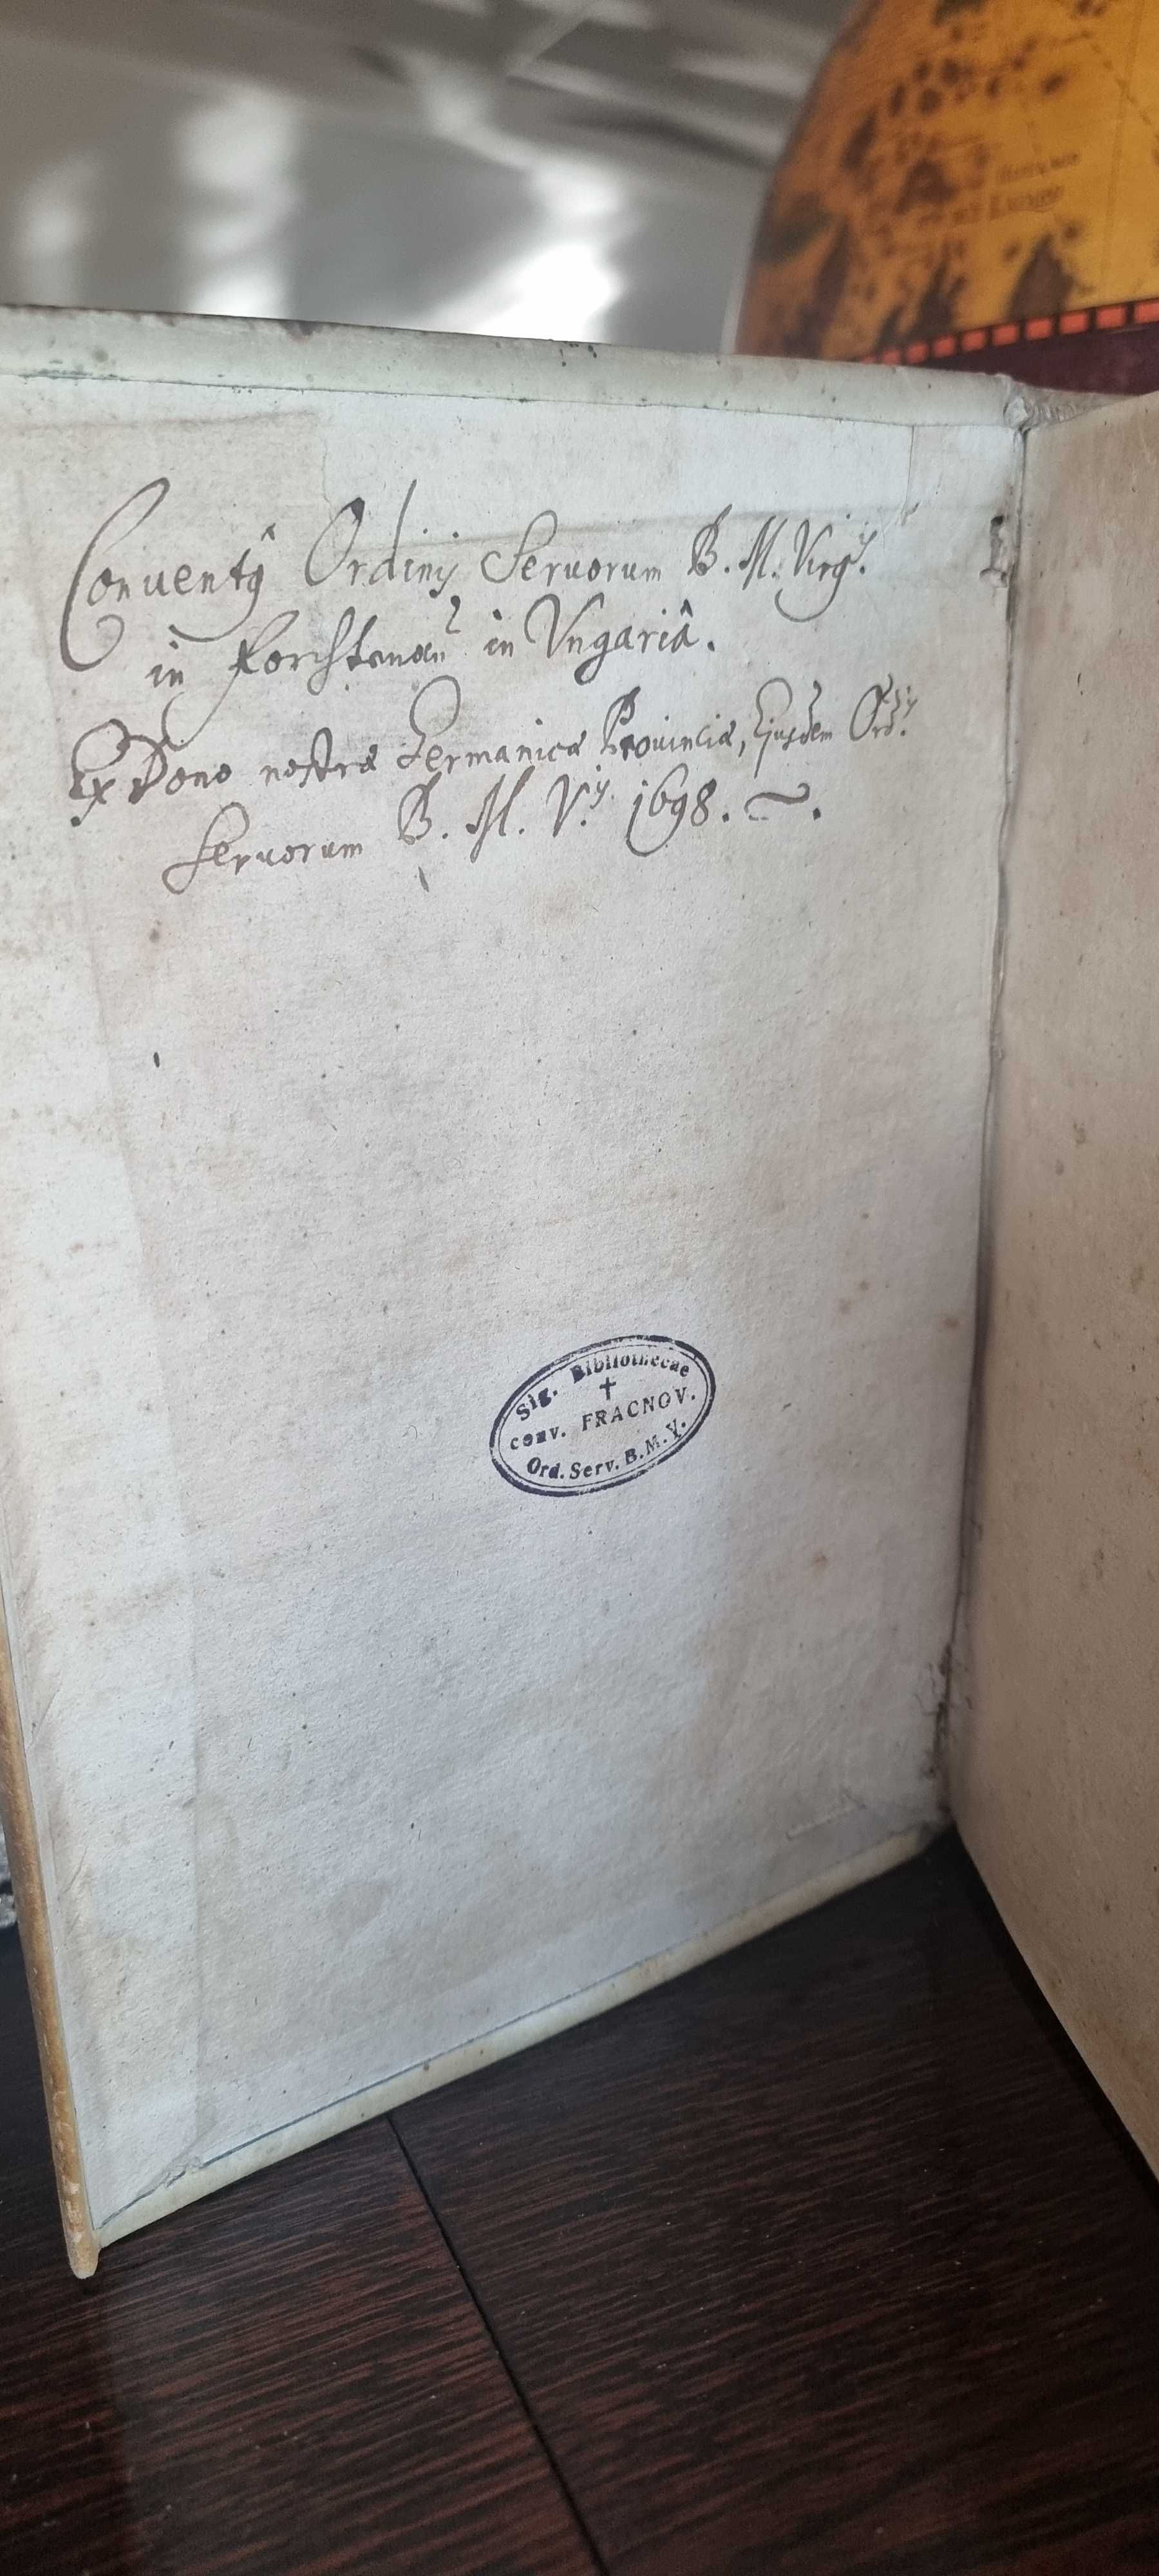 Conventꝰ Ordinis Seruorum B. M. Virgꝭ.
in Forchtenau in Vngariâ.
Ex Dono nostræ Germanicæ Prouinciæ, Ejusdem Ord.is
Seruorum B. M. V.is 1698. ~.
Sig. Bibliothecae
†
conv. FRACNOV.
Ord. Serv. B. M. V.